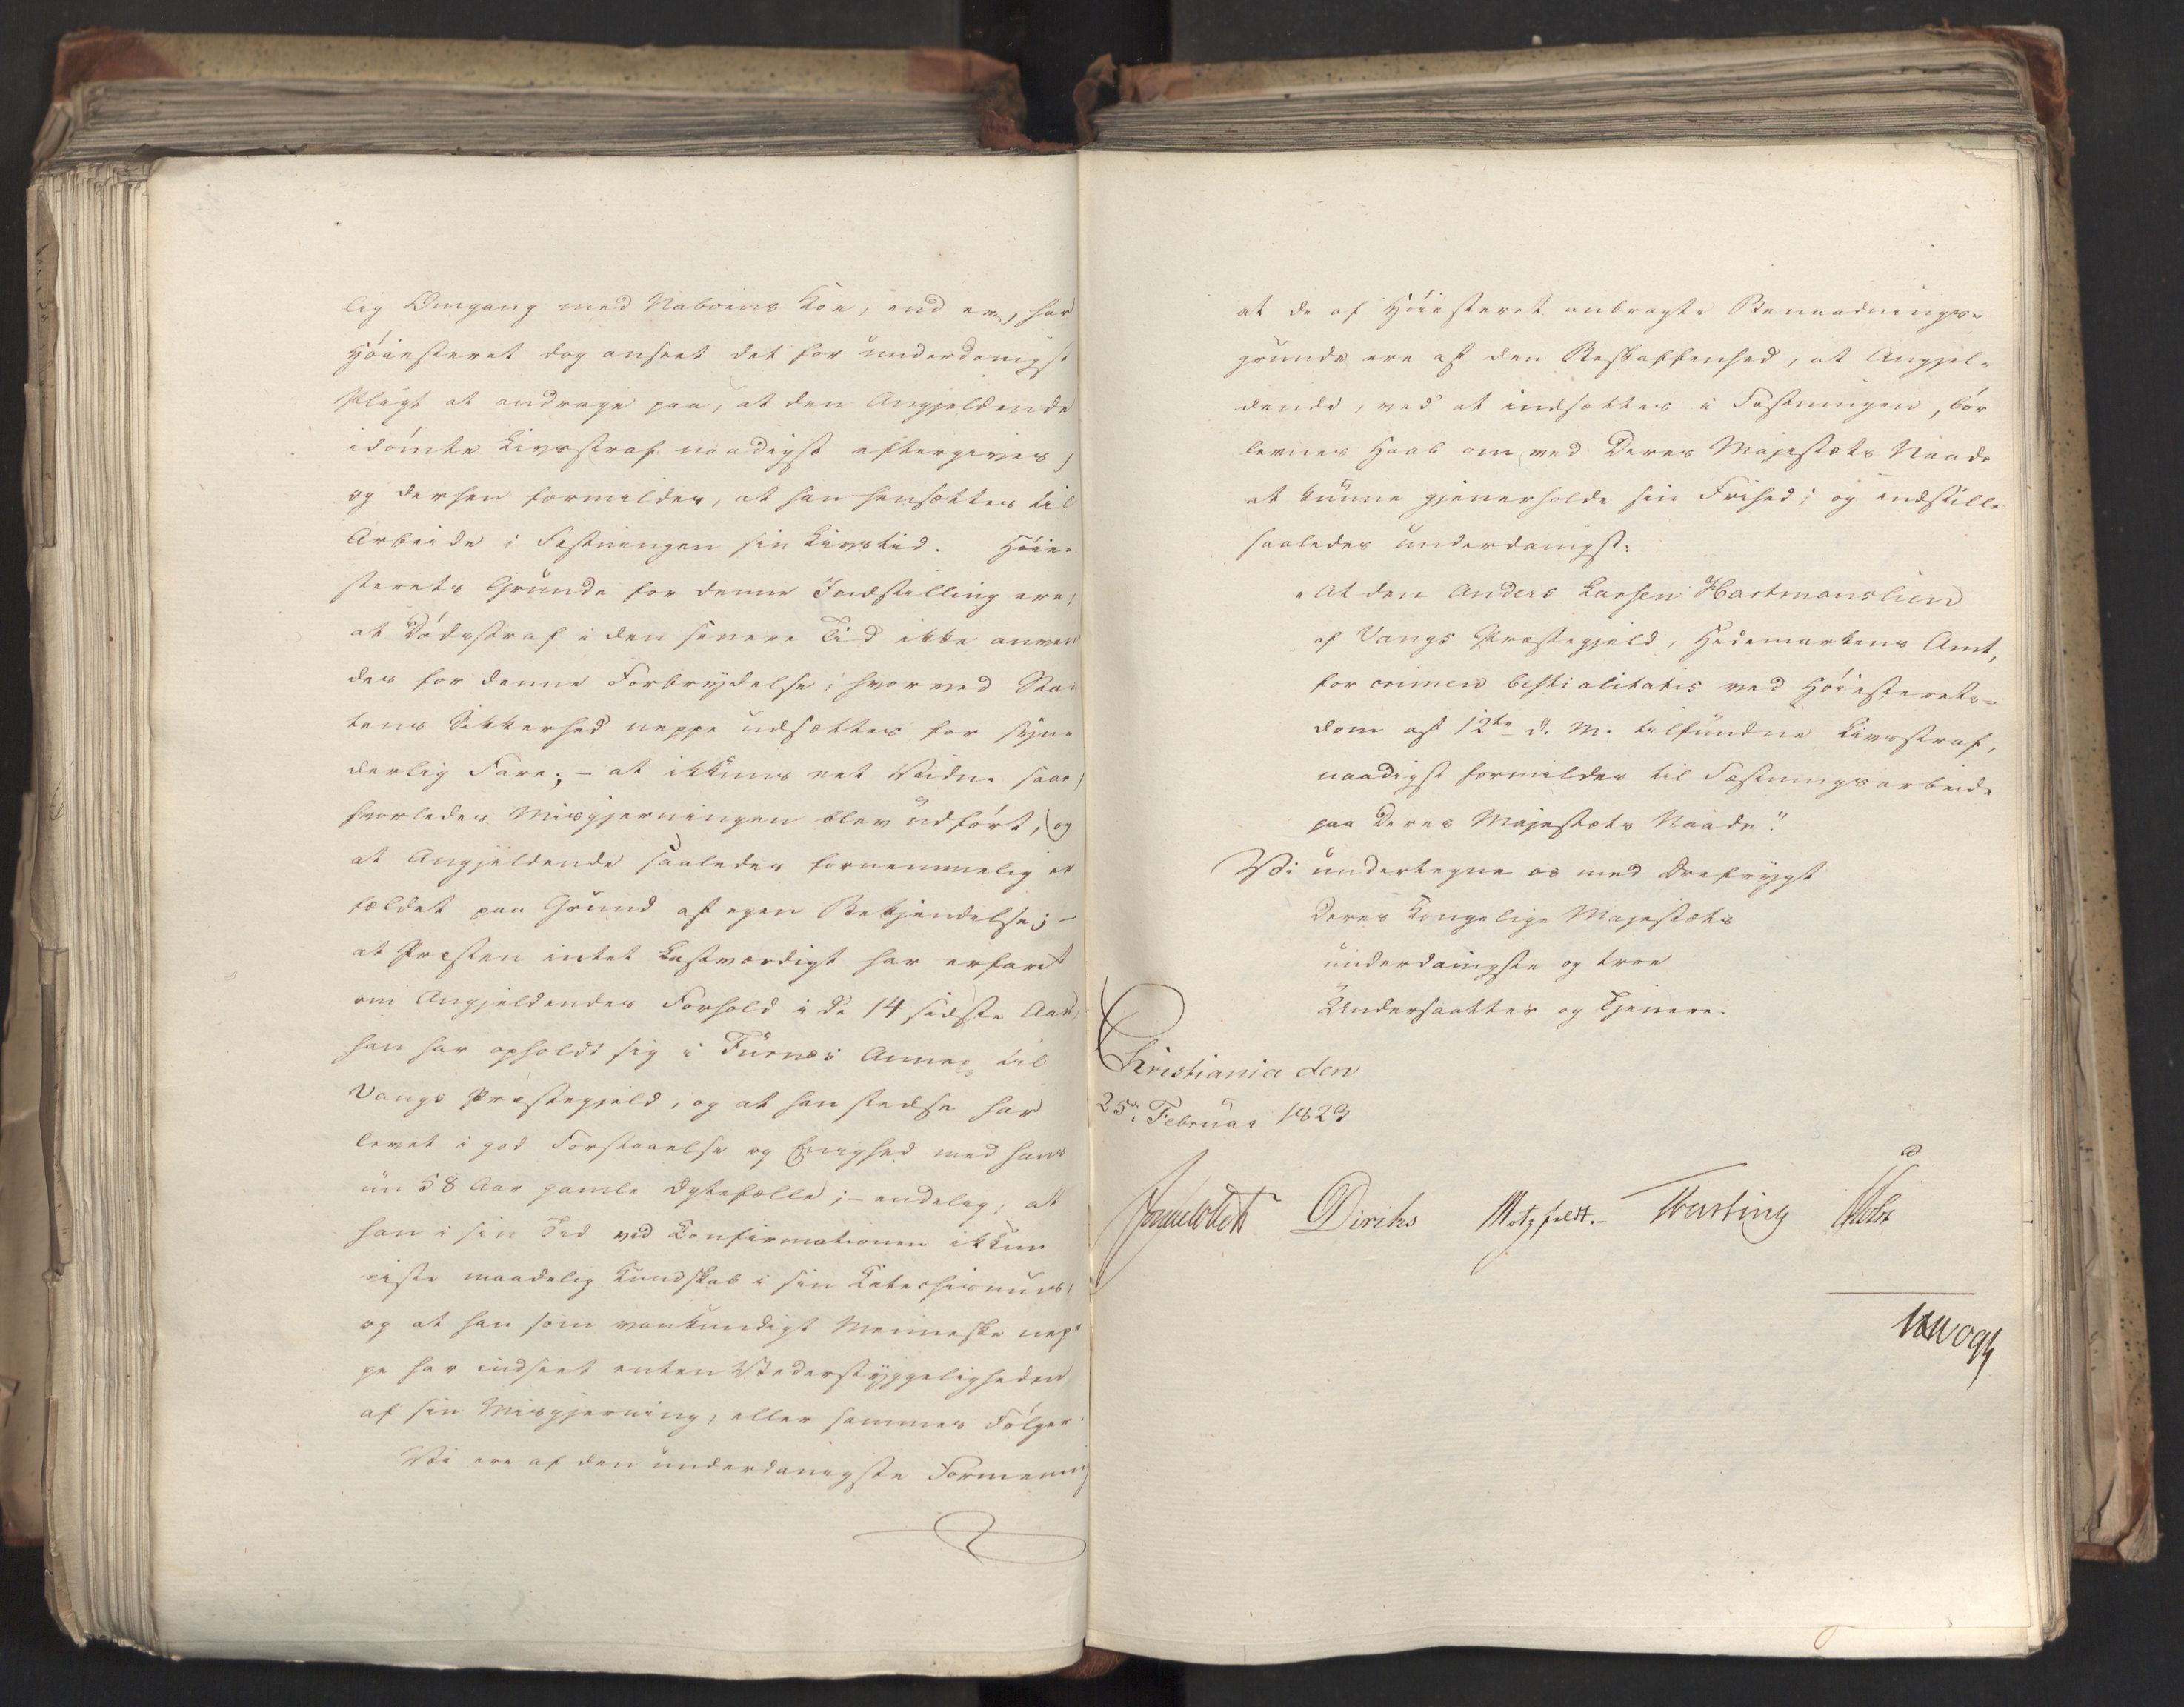 lig Omgang med Naboens Koe, end er, har
Høiesteret dog anseet det for underdanigst
Pligt at andrage paa, at den Angjeldende
idømte Livsstraf naadigst eftergives,
og derhen formildes, at han hensættes til
Arbeide i Fæstningen sin Livstid. Høie-
sterets Grunde for denne Indstilling ere,
at Dødsstraf i den senere Tid ikke anven
des for denne Forbrydelse, hvorved Sta-
tens Sikkerhed neppe udsættes for syn-
derlig Fare; - at ikkuns eet Vidne saae,
hvorledes Misgjerningen blev udført, og
at Angjeldende saaledes fornemmelig er
fældet paa Grund af egen Bekjendelse; -
at Præsten intet Lastværdigt har erfaret
om Angjeldendes Forhold i de 14 sidste Aar,
han har opholdt sig i Furnæs Annex til
Vangs Præstegjeld, og at han stedse har
levet i god Forstaaelse og Enighed med hans
nu 58 Aar gamle Ægtefælle; - endelig, at
han i sin Tid ved Confirmationen ikkun
viste maadelig Kundskab i sin Catechismus,
og at han som vankundigt Menneske nep-
pe har indseet enten Vederstyggeligheden
af sin Misgjerning, eller sammes Følger.
Vi ere af den underdanigste Formening
at de af Høiesteret anbragte Benaadnings-
grunde ere af den Beskaffenhed, at Angjel-
dende, ved at indsættes i Fæstningen, bør
levnes Haab om ved Deres Majestæts Naade
at kunne gjenerholde sin Frihed; og indstille
saaledes underdanigst:
"At den Anders Larsen Hartmanslien
af Vangs Præstegjeld, Hedemarkens Amt,
for crimen bestialitatis ved Høiesterets-
dom af 12te d. M. tilfundne Livsstraf,
naadigst formildes til Fæstningsarbeide
paa Deres Majestæts Naade."
Vi undertegne os med Ærefrygt
Deres Kongelige Majestæts
underdanigste og troe
Undersaatter og Tjenere.
Christiania den
25de Februar 1823
Sommerhielm Diriks Motzfeldt. Treschow Holst
Vogt